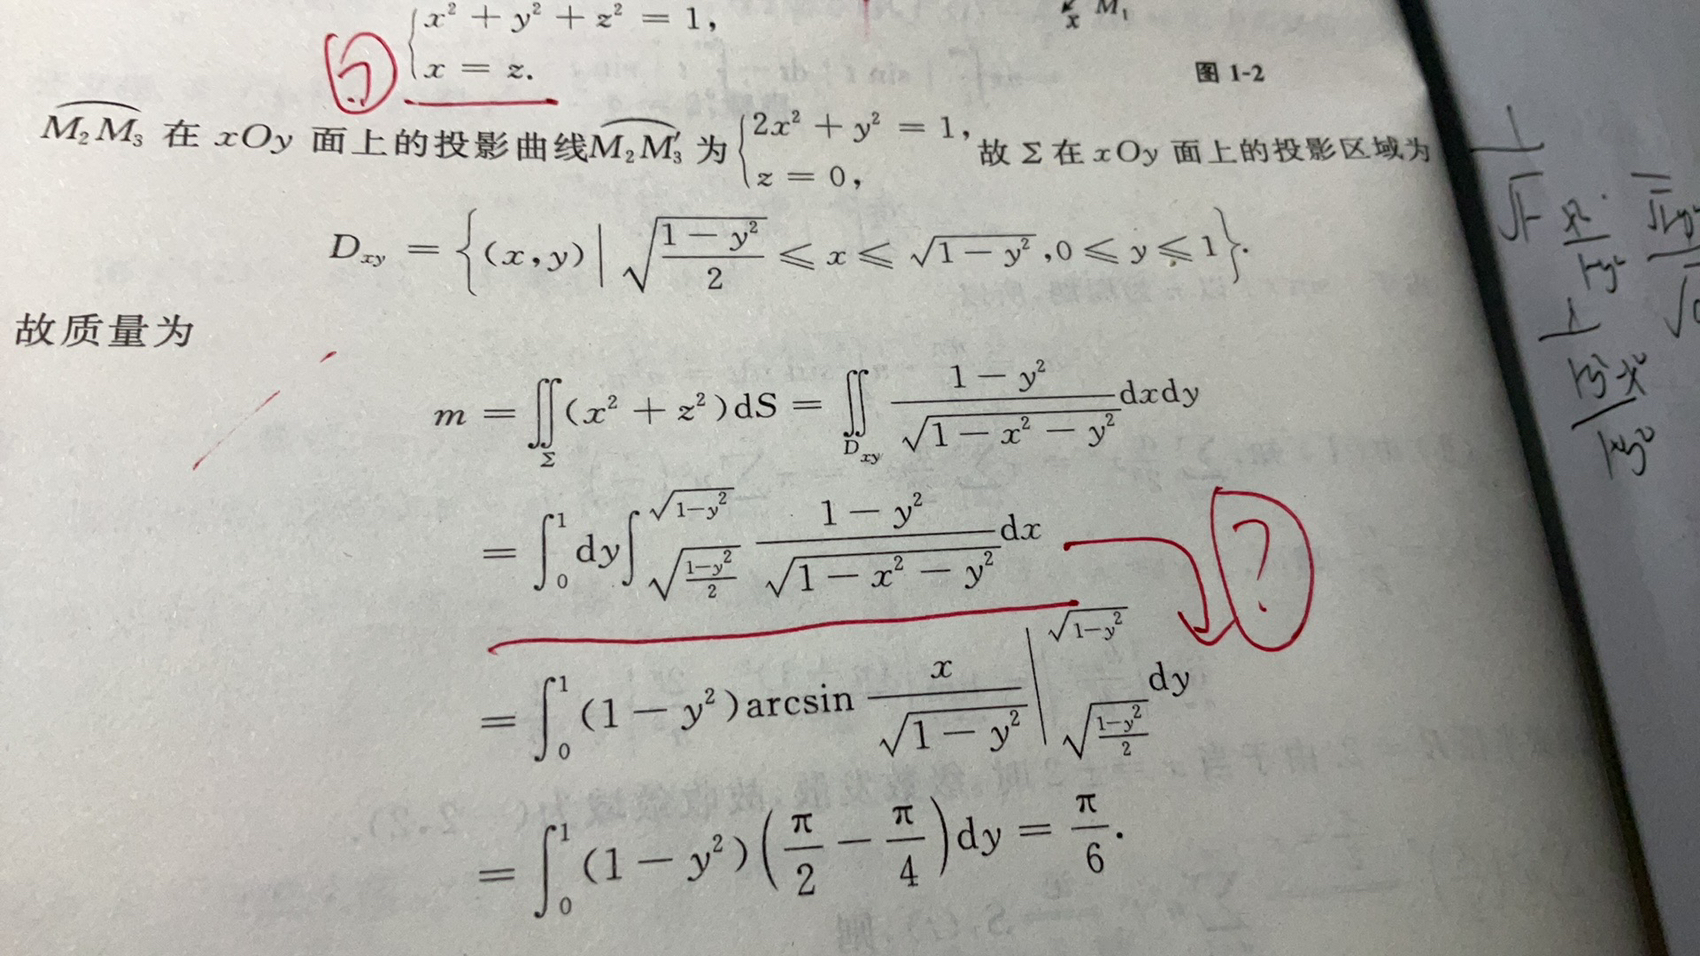 x² + y² + z² = 1,
x = z.
x M₁
图 1-2
M₂M₃ 在 xOy 面上的投影曲线M₂M₃′ 为 { 2x² + y² = 1, z = 0, 故 Σ 在 xOy 面上的投影区域为
D_xy = { (x,y) | √((1−y²)/2) ≤ x ≤ √(1−y²), 0 ≤ y ≤ 1 }.
故质量为
m = ∬_Σ (x² + z²)dS = ∬_D_xy (1−y²)/√(1−x²−y²) dxdy
= ∫₀¹ dy ∫_{√((1−y²)/2)}^{√(1−y²)} (1−y²)/√(1−x²−y²) dx
?
= ∫₀¹ (1−y²)arcsin x/√(1−y²) |_{√((1−y²)/2)}^{√(1−y²)} dy
= ∫₀¹ (1−y²)(π/2 − π/4)dy = π/6.